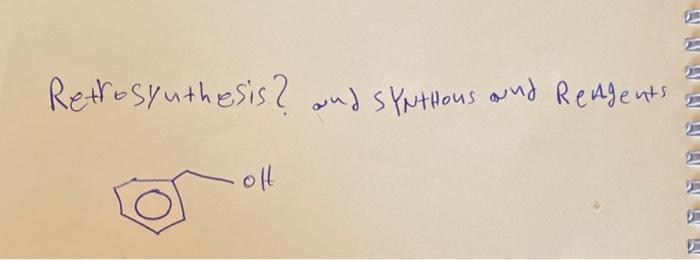 Retrosynthesis? and SYNTHONS and ReAgents
OH